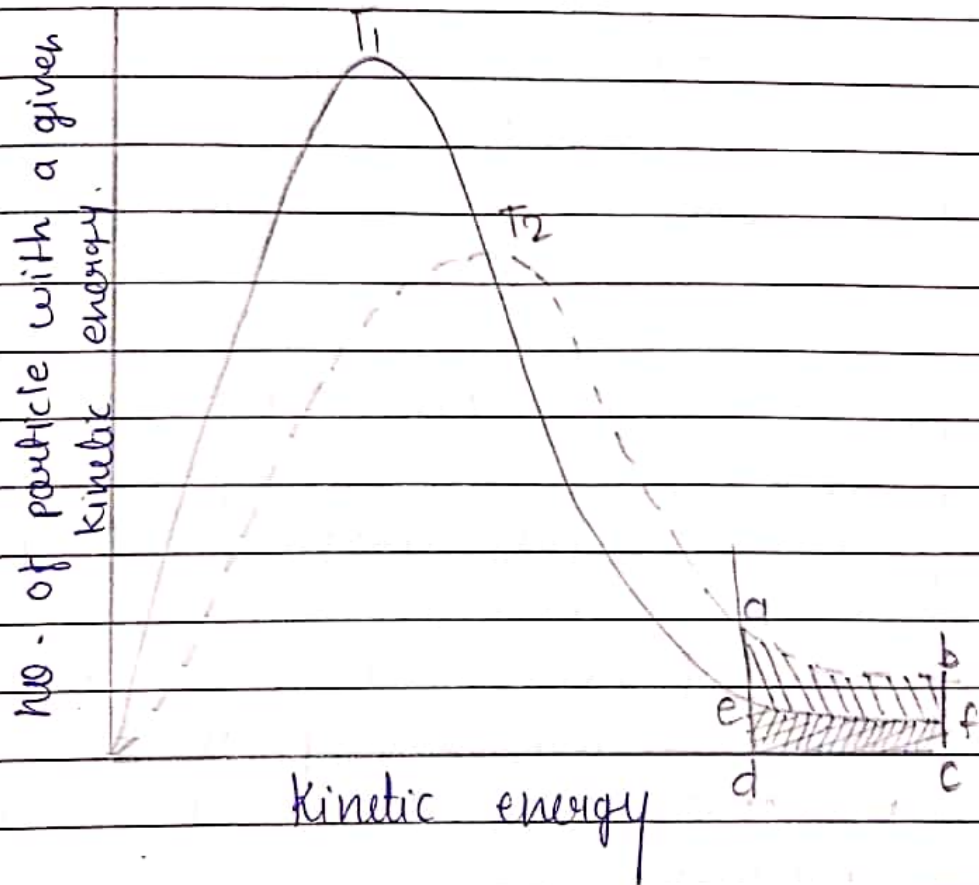 No. of particle with a given
kinetic energy.
T1
T2
a
b
e
f
d
c
Kinetic energy